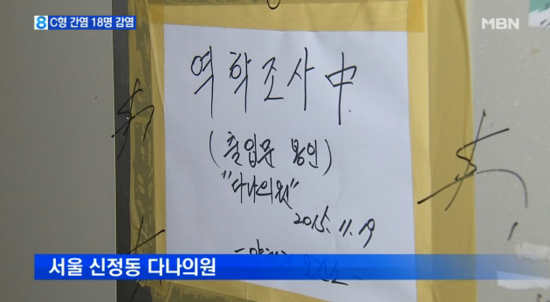 8 C형 간염 18명 감염
MBN
역학조사中
(출입문 봉인)
"다나의원"
2015. 11. 19
서울 신정동 다나의원